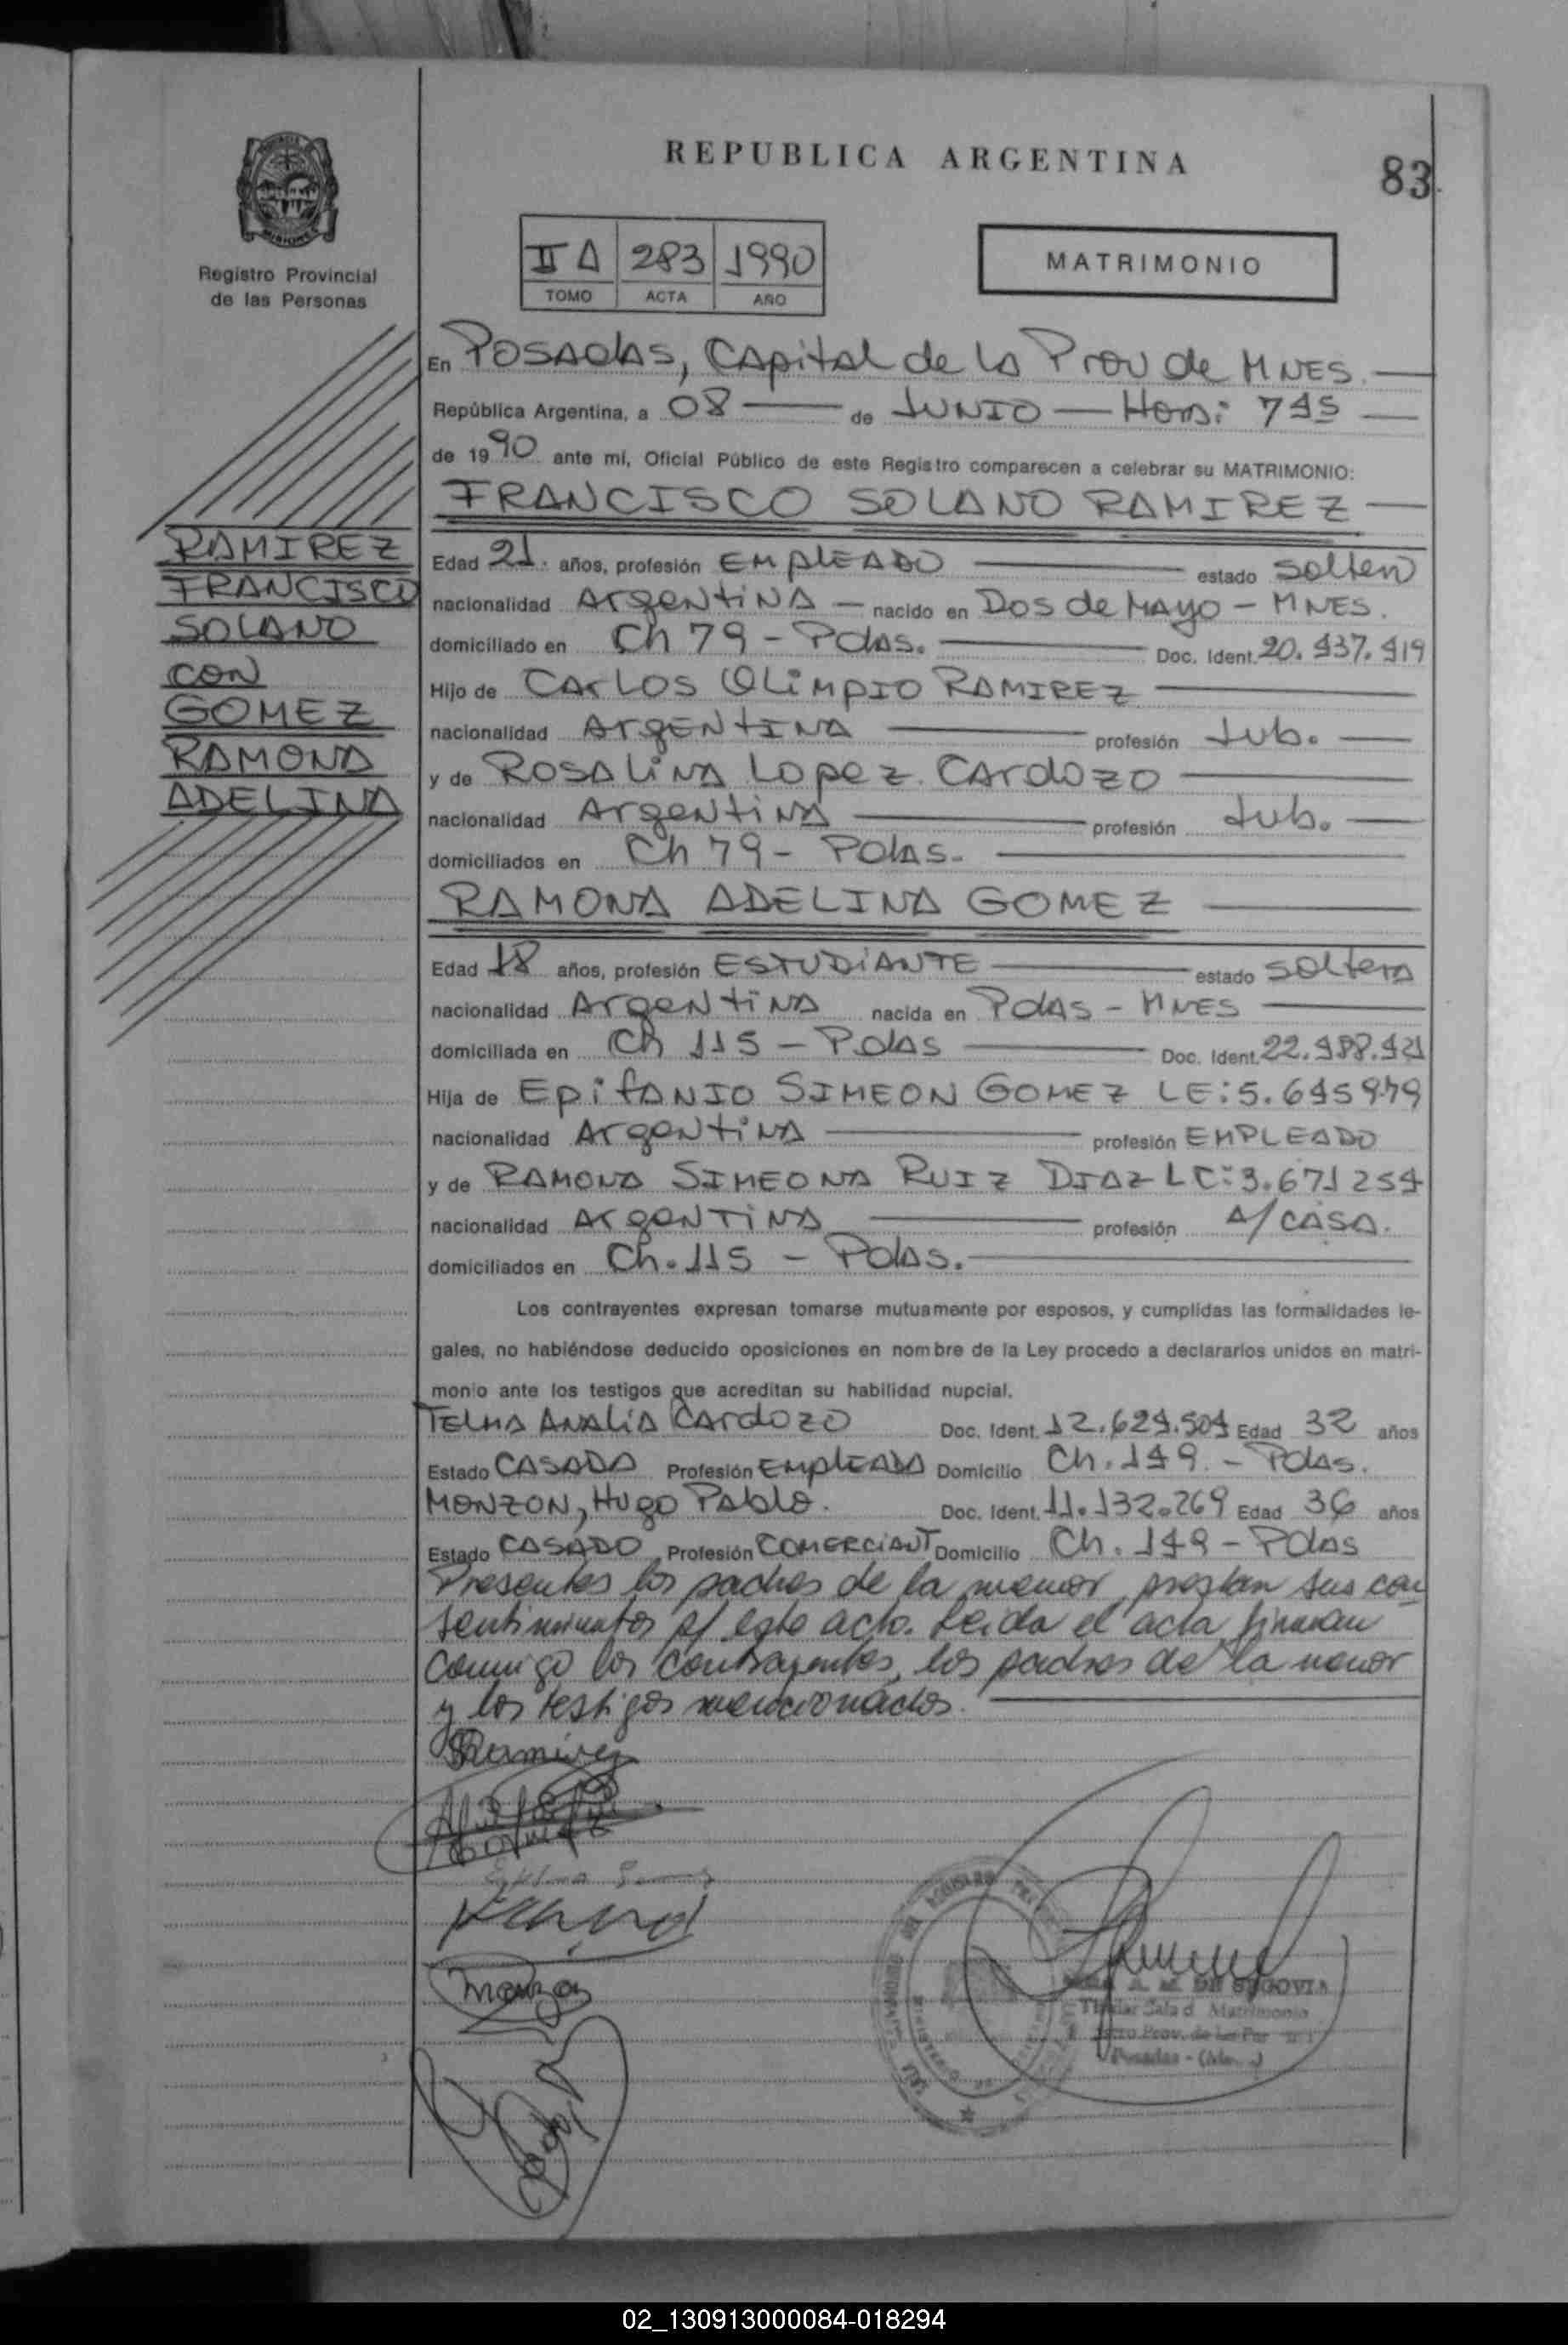 REPUBLICA ARGENTINA
83
Registro Provincial
de las Personas
II A 283 1990
TOMO ACTA AÑO
MATRIMONIO
RAMIREZ
FRANCISCO
SOLANO
CON
GOMEZ
RAMONA
ADELINA
En POSAdAS, CApitAl de LA Prov de MNES.
República Argentina, a 08 de JUNIO Hora: 745
de 1990 ante mí, Oficial Público de este Registro comparecen a celebrar su MATRIMONIO:
FRANCISCO SOLANO RAMIREZ
Edad 21. años, profesión EMPLEADO estado soltero
nacionalidad ArgentinA nacido en Dos de MAyo - MNES.
domiciliado en Ch 79 - PdAs. Doc. Ident. 20.437.419
Hijo de CArLos OLiMpIO RAMIREZ
nacionalidad ArgENtINA profesión Jub.
y de ROSALiNA Lopez CArdozo
nacionalidad ArgentiNA profesión Jub.
domiciliados en Ch 79 - PdAs.
RAMONA ADELINA GOMEZ
Edad 18 años, profesión ESTUDiANTE estado solterA
nacionalidad ArgentiNA nacida en PdAs - MNES
domiciliada en Ch 115 - PdAs Doc. Ident. 22.488.421
Hija de EpifANIO SIMEON GOMEZ LE: 5.645979
nacionalidad ArgentiNA profesión EMPLEADO
y de RAMONA SIMEONA RUIZ DIAZ LC: 3.671254
nacionalidad ArgentiNA profesión A/CASA.
domiciliados en Ch. 115 - PdAs.
Los contrayentes expresan tomarse mutuamente por esposos, y cumplidas las formalidades le-
gales, no habiéndose deducido oposiciones en nombre de la Ley procedo a declararlos unidos en matri-
monio ante los testigos que acreditan su habilidad nupcial.
TELMA ANALiA CArdozo Doc. Ident. 12.624.504 Edad 32 años
Estado CASADA Profesión EMpLEADA Domicilio Ch. 149 - PdAs.
MONZON, Hugo PAblo. Doc. Ident. 11.132.269 Edad 36 años
Estado CASADO Profesión COMERCiANT Domicilio Ch. 149 - PdAs
Presentes los padres de la menor prestan sus con
sentimientos p/ este acto. Leida el acta firman
conmigo los contrayentes, los padres de la menor
y los testigos mencionados.
Ramirez
Gomez
Monzon
A. M. DE SEGOVIA
Titular Sala d Matrimonio
Prov. de las Per
Posadas
02_130913000084-018294